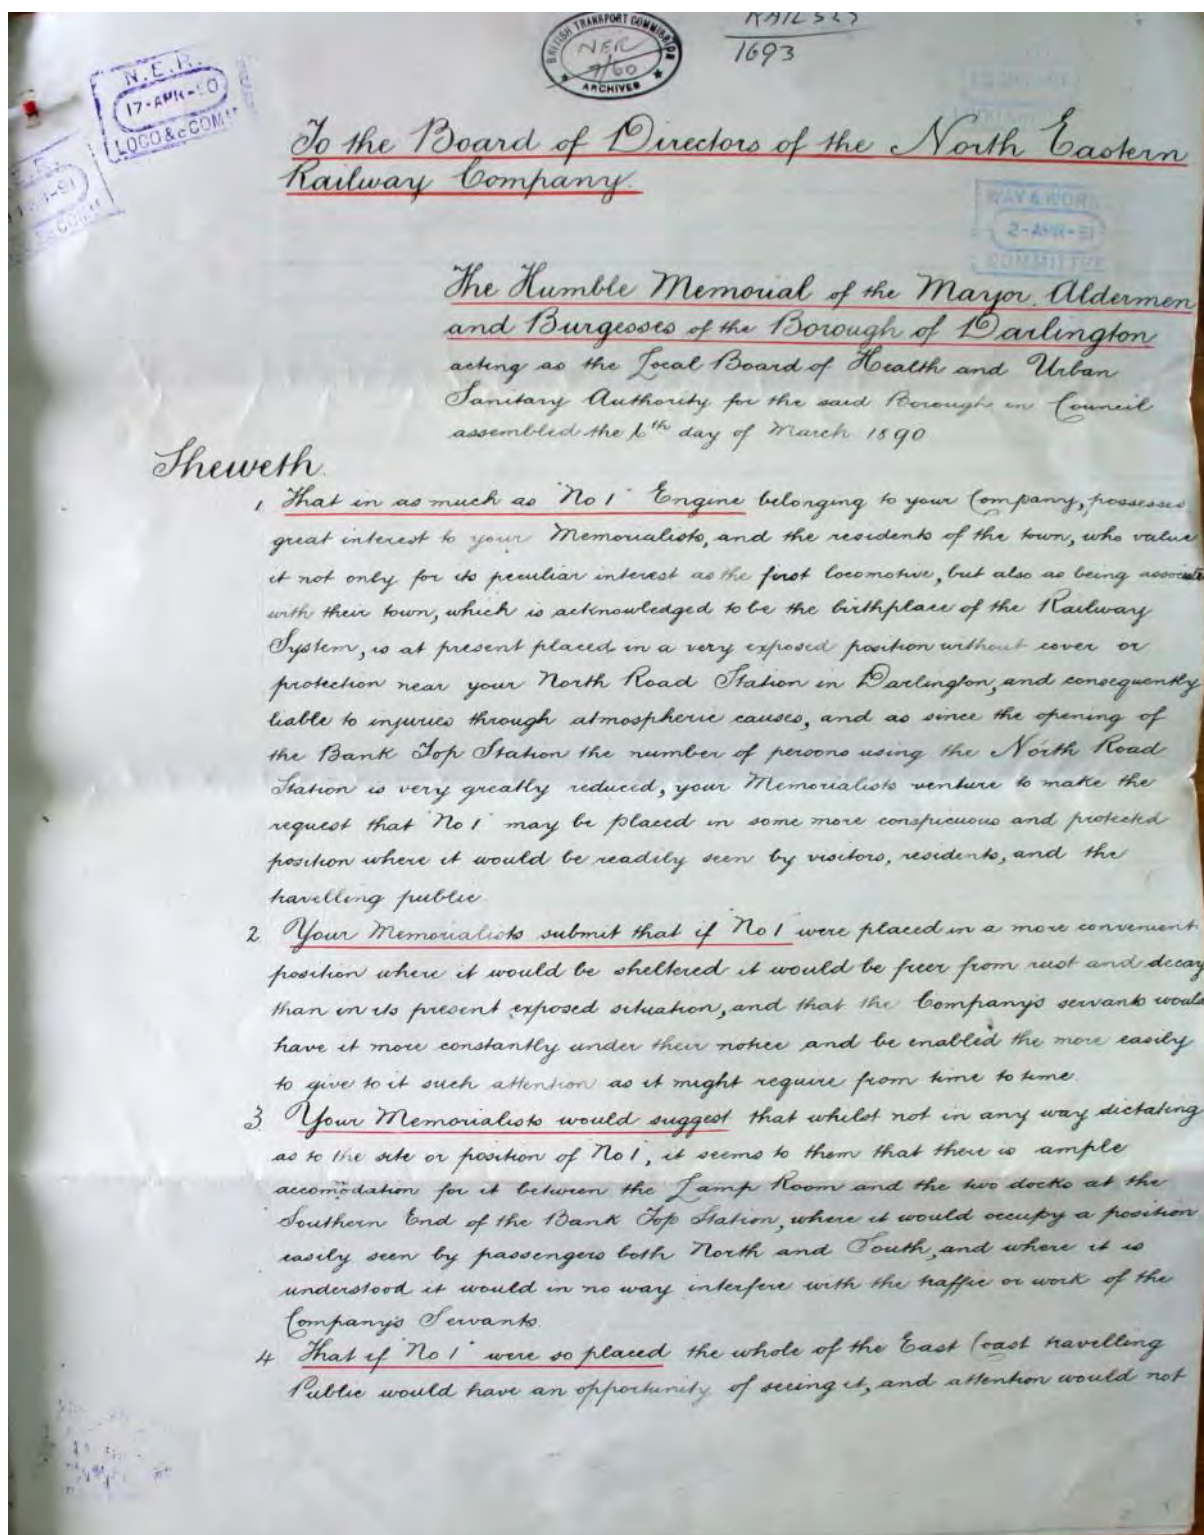 BRITISH TRANSPORT COMMISSION
NER
9/60
ARCHIVES
RAIL 527
1693
N.E.R.
17-APR-90
LOCO &c COMM
WAY & WORKS
2-APR-91
COMMITTEE
To the Board of Directors of the North Eastern
Railway Company.
The Humble Memorial of the Mayor, Aldermen
and Burgesses of the Borough of Darlington
acting as the Local Board of Health and Urban
Sanitary Authority for the said Borough in Council
assembled the 6th day of March 1890
Sheweth.
1 That in as much as "No 1" Engine belonging to your Company, possesses
great interest to your Memorialists, and the residents of the town, who value
it not only for its peculiar interest as the first locomotive, but also as being associate
with their town, which is acknowledged to be the birthplace of the Railway
System, is at present placed in a very exposed position without cover or
protection near your North Road Station in Darlington, and consequently
liable to injuries through atmospheric causes, and as since the opening of
the Bank Top Station the number of persons using the North Road
Station is very greatly reduced, your Memorialists venture to make the
request that "No 1" may be placed in some more conspicuous and protected
position where it would be readily seen by visitors, residents, and the
travelling public.
2. Your Memorialists submit that if "No 1" were placed in a more convenient
position where it would be sheltered it would be freer from rust and decay
than in its present exposed situation, and that the Company's servants would
have it more constantly under their notice and be enabled the more easily
to give to it such attention as it might require from time to time.
3. Your Memorialists would suggest that whilst not in any way dictating
as to the site or position of "No 1", it seems to them that there is ample
accomodation for it between the Lamp Room and the two docks at the
Southern End of the Bank Top Station, where it would occupy a position
easily seen by passengers both North and South, and where it is
understood it would in no way interfere with the traffic or work of the
Company's Servants.
4 That if "No 1" were so placed the whole of the East Coast travelling
Public would have an opportunity of seeing it, and attention would not